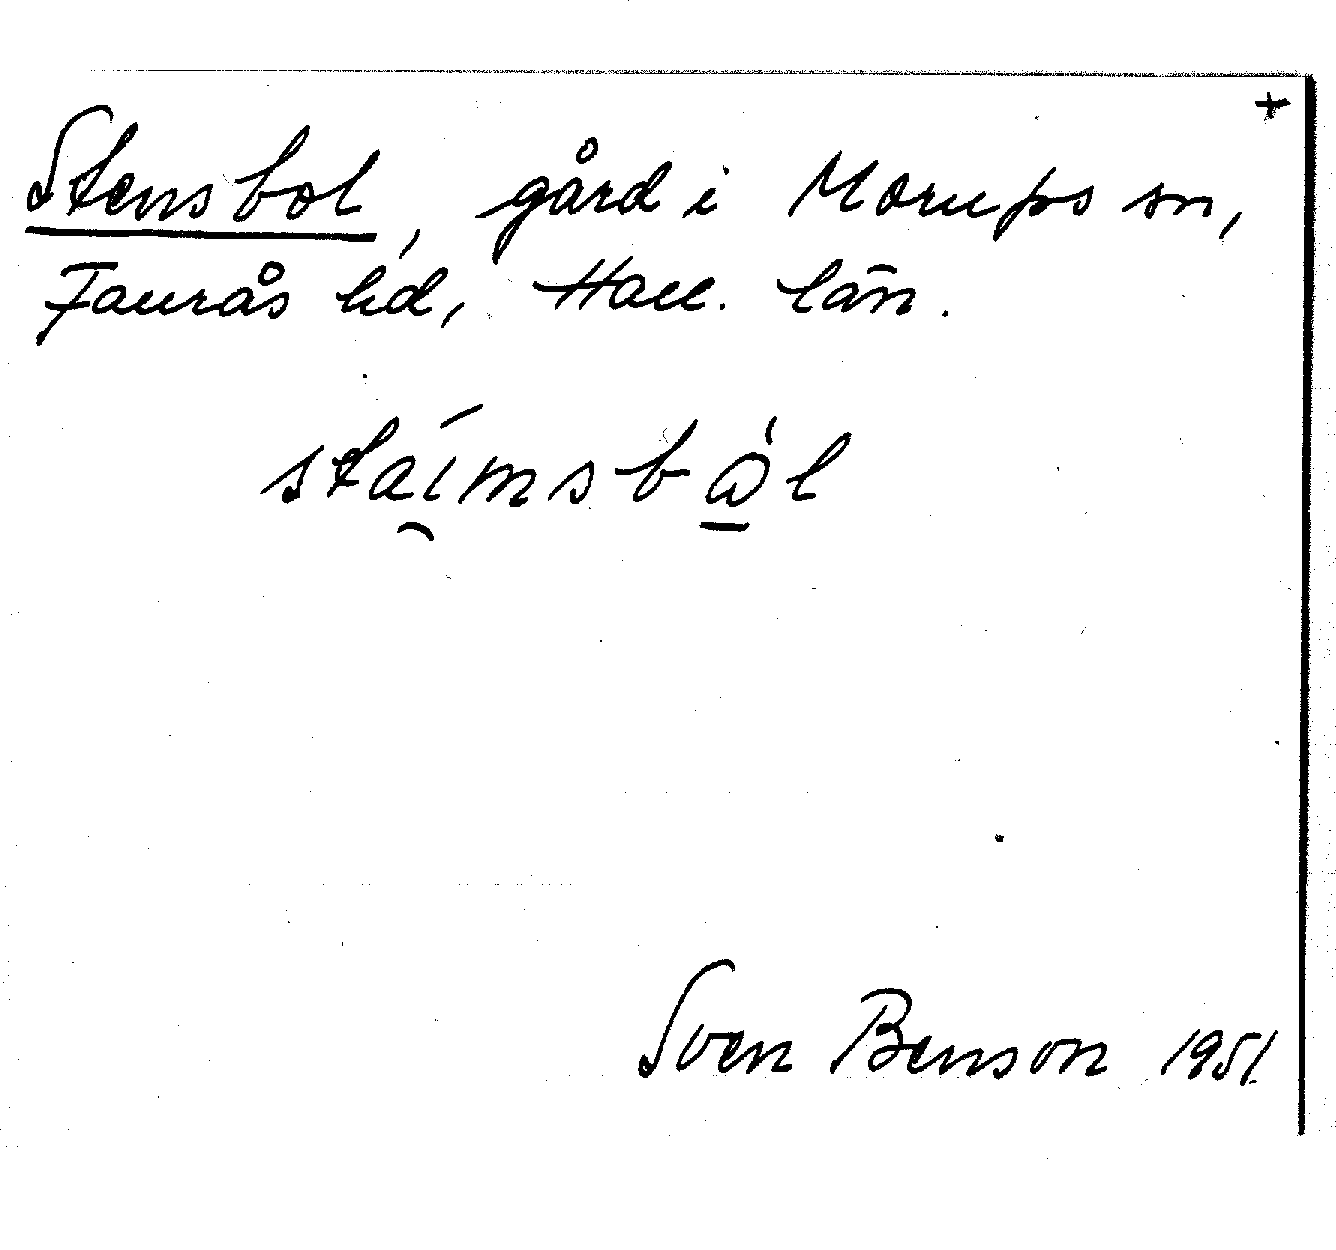 +
Stensbol, gård i Morups sn,
Faurås hd, Hall. län.
sta̯ímsbὼ̲l
Sven Benson 1951